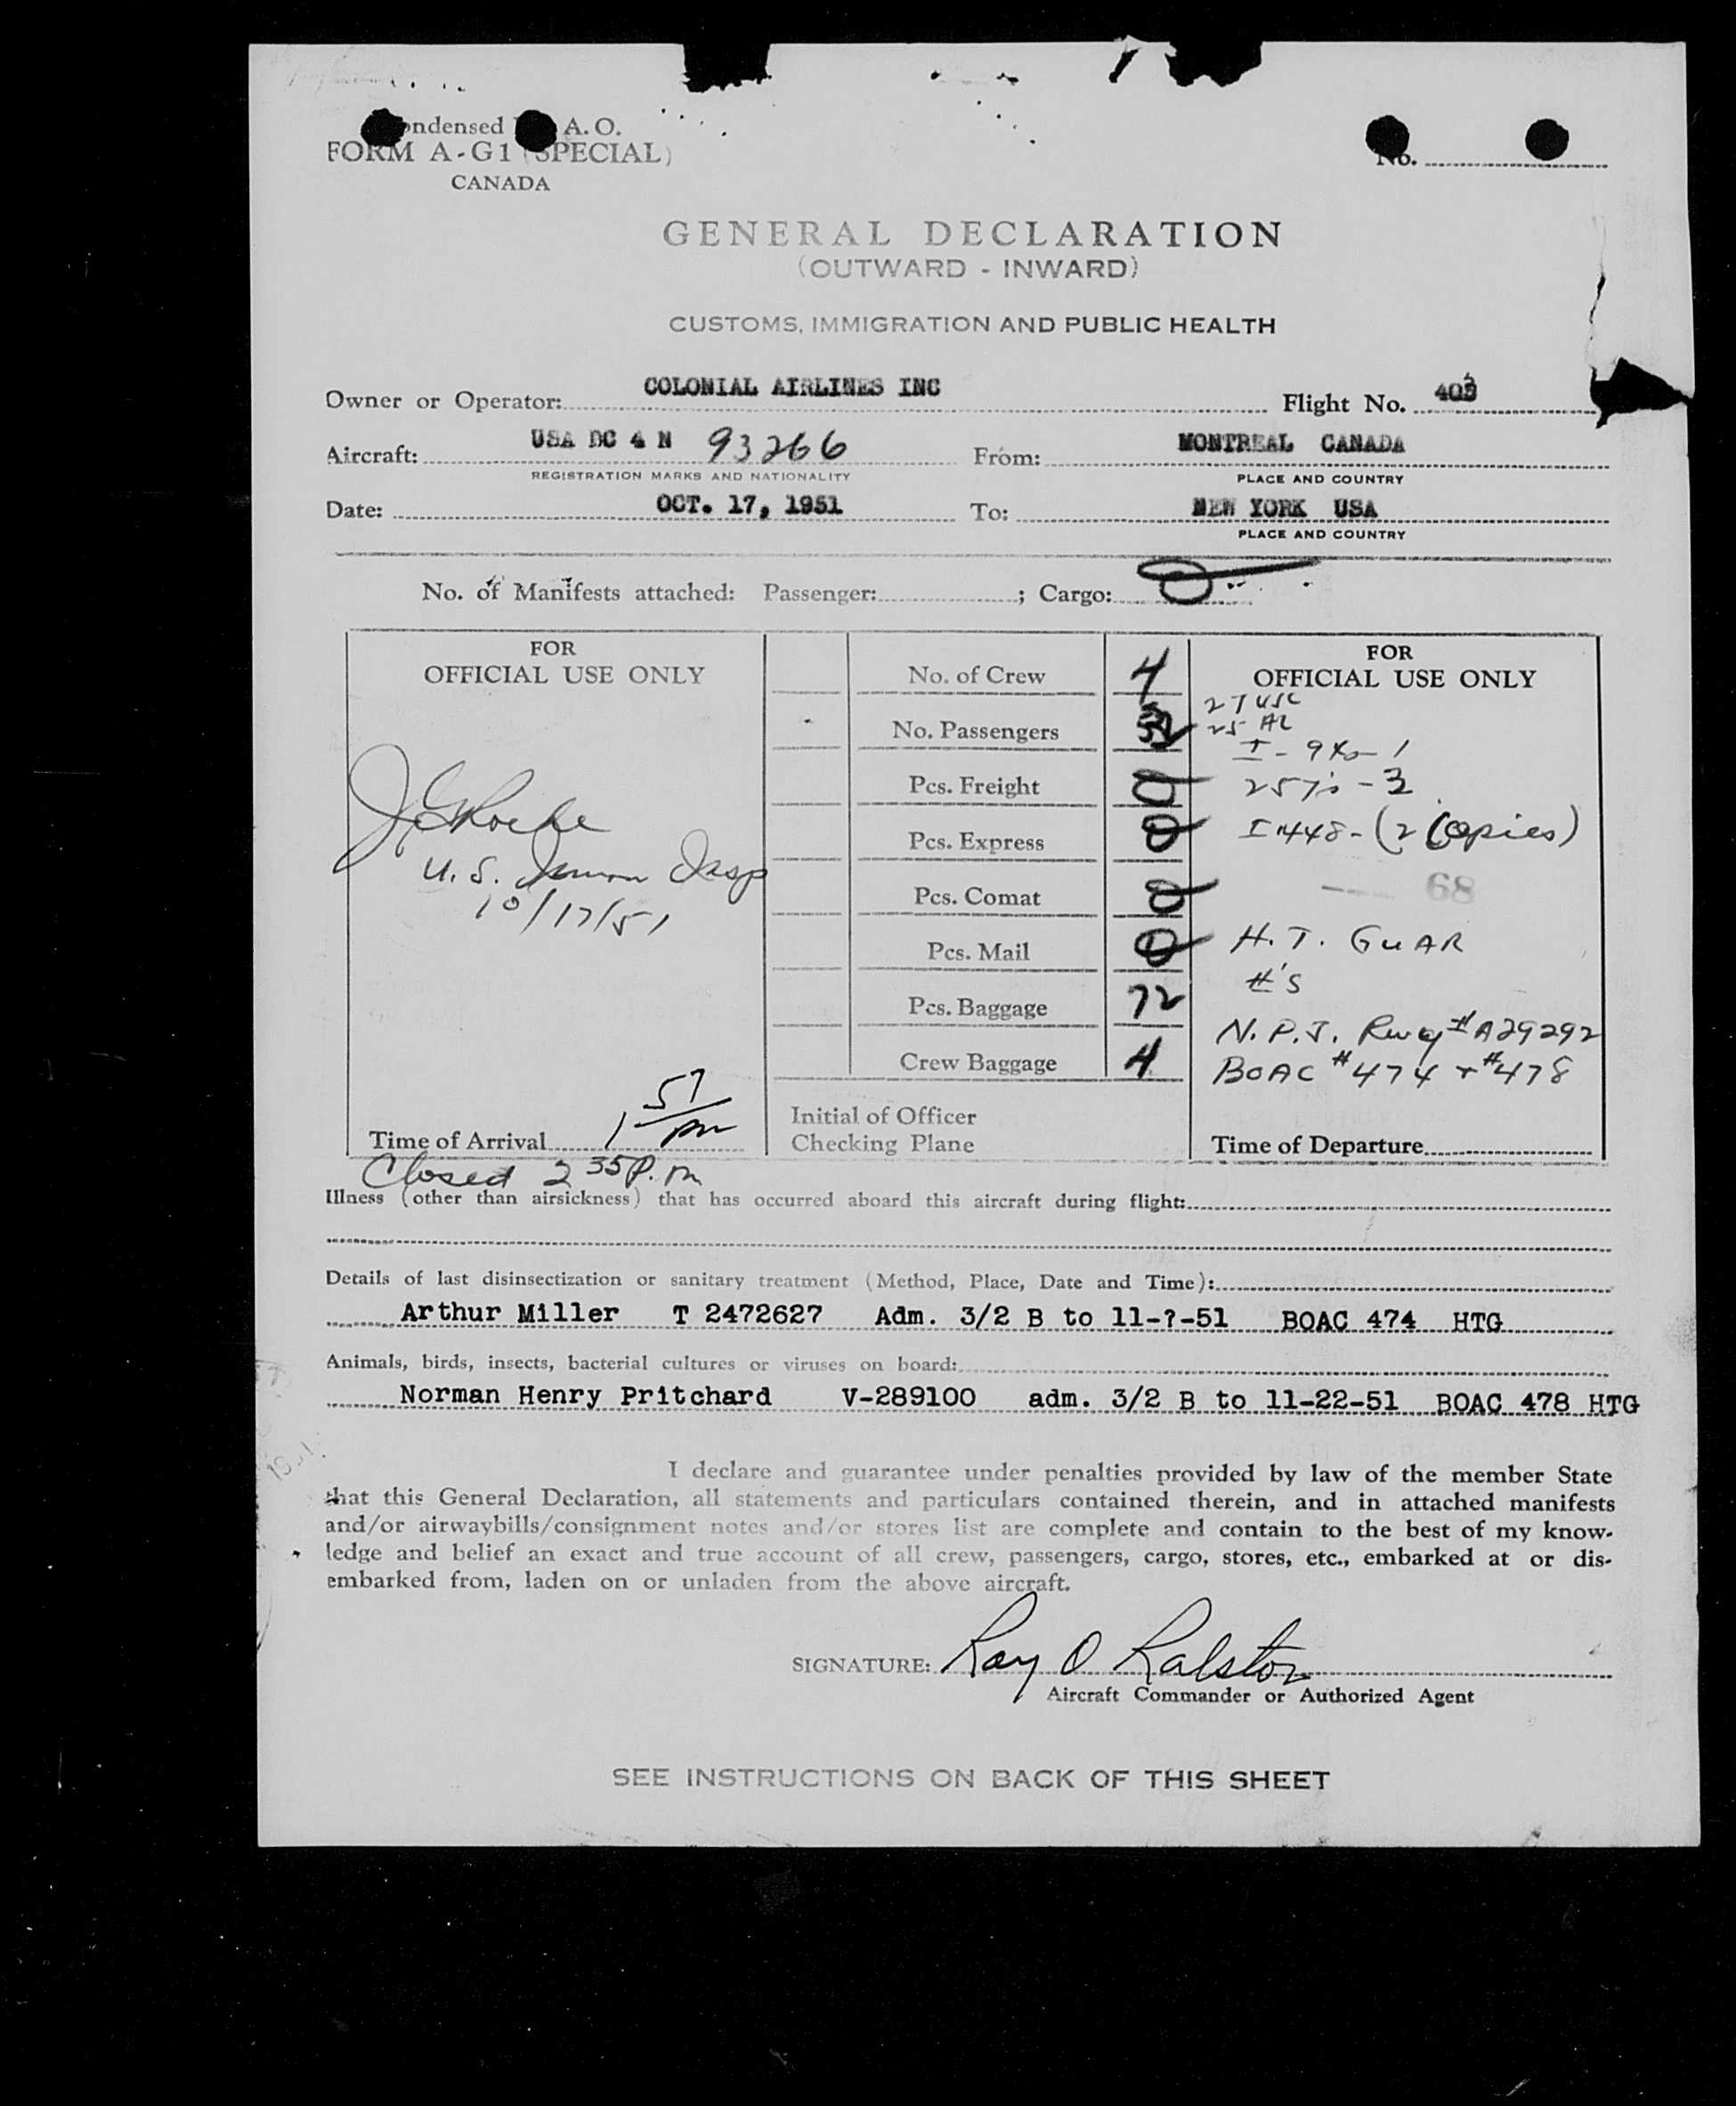 ondensed A. O.
FORM A-G1 (SPECIAL)
CANADA
No.
GENERAL DECLARATION
(OUTWARD - INWARD)
CUSTOMS, IMMIGRATION AND PUBLIC HEALTH
Owner or Operator: COLONIAL AIRLINES INC Flight No.
Aircraft: USA DC 4 N 93266 From: MONTREAL CANADA
REGISTRATION MARKS AND NATIONALITY PLACE AND COUNTRY
Date: OCT. 17, 1951 To: NEW YORK USA
PLACE AND COUNTRY
No. of Manifests attached: Passenger: ; Cargo: 0
FOR
OFFICIAL USE ONLY
U.S. Insp
10/17/51
Time of Arrival 1 57 pm
Closed 2 35 P.m
No. of Crew 4
No. Passengers
Pcs. Freight 0
Pcs. Express 0
Pcs. Comat 0
Pcs. Mail 0
Pcs. Baggage 72
Crew Baggage 4
Initial of Officer
Checking Plane
FOR
OFFICIAL USE ONLY
27 USC
25 AL
I-94s-1
257's-3
I 448-(2 Copies)
68
H.T. GUAR
#'S
N.P.J. #A29292
BOAC #474 + #478
Time of Departure
Illness (other than airsickness) that has occurred aboard this aircraft during flight:
Details of last disinsectization or sanitary treatment (Method, Place, Date and Time):
Arthur Miller T 2472627 Adm. 3/2 B to 11-?-51 BOAC 474 HTG
Animals, birds, insects, bacterial cultures or viruses on board:
Norman Henry Pritchard V-289100 adm. 3/2 B to 11-22-51 BOAC 478 HTG
I declare and guarantee under penalties provided by law of the member State
that this General Declaration, all statements and particulars contained therein, and in attached manifests
and/or airwaybills/consignment notes and/or stores list are complete and contain to the best of my know-
ledge and belief an exact and true account of all crew, passengers, cargo, stores, etc., embarked at or dis-
embarked from, laden on or unladen from the above aircraft.
SIGNATURE: Ray O Ralston
Aircraft Commander or Authorized Agent
SEE INSTRUCTIONS ON BACK OF THIS SHEET